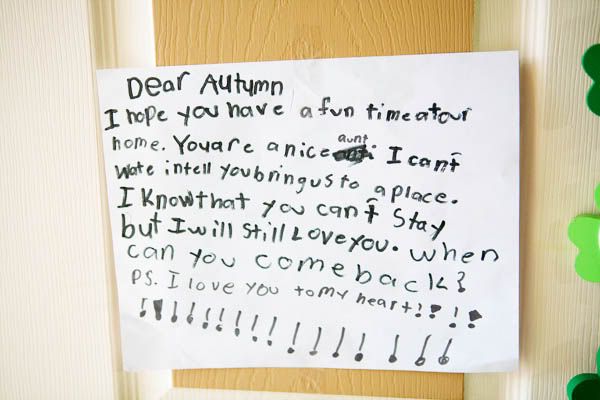 Dear Autumn
I hope you have a fun time at our
home. You are a nice aunt I can't
wate intell you bring us to a place.
I Know that you can't stay
but I will still Love you. when
can you come back?
PS. I love you to my heart!!!!
!!!!!!!!!!!!!!!!!